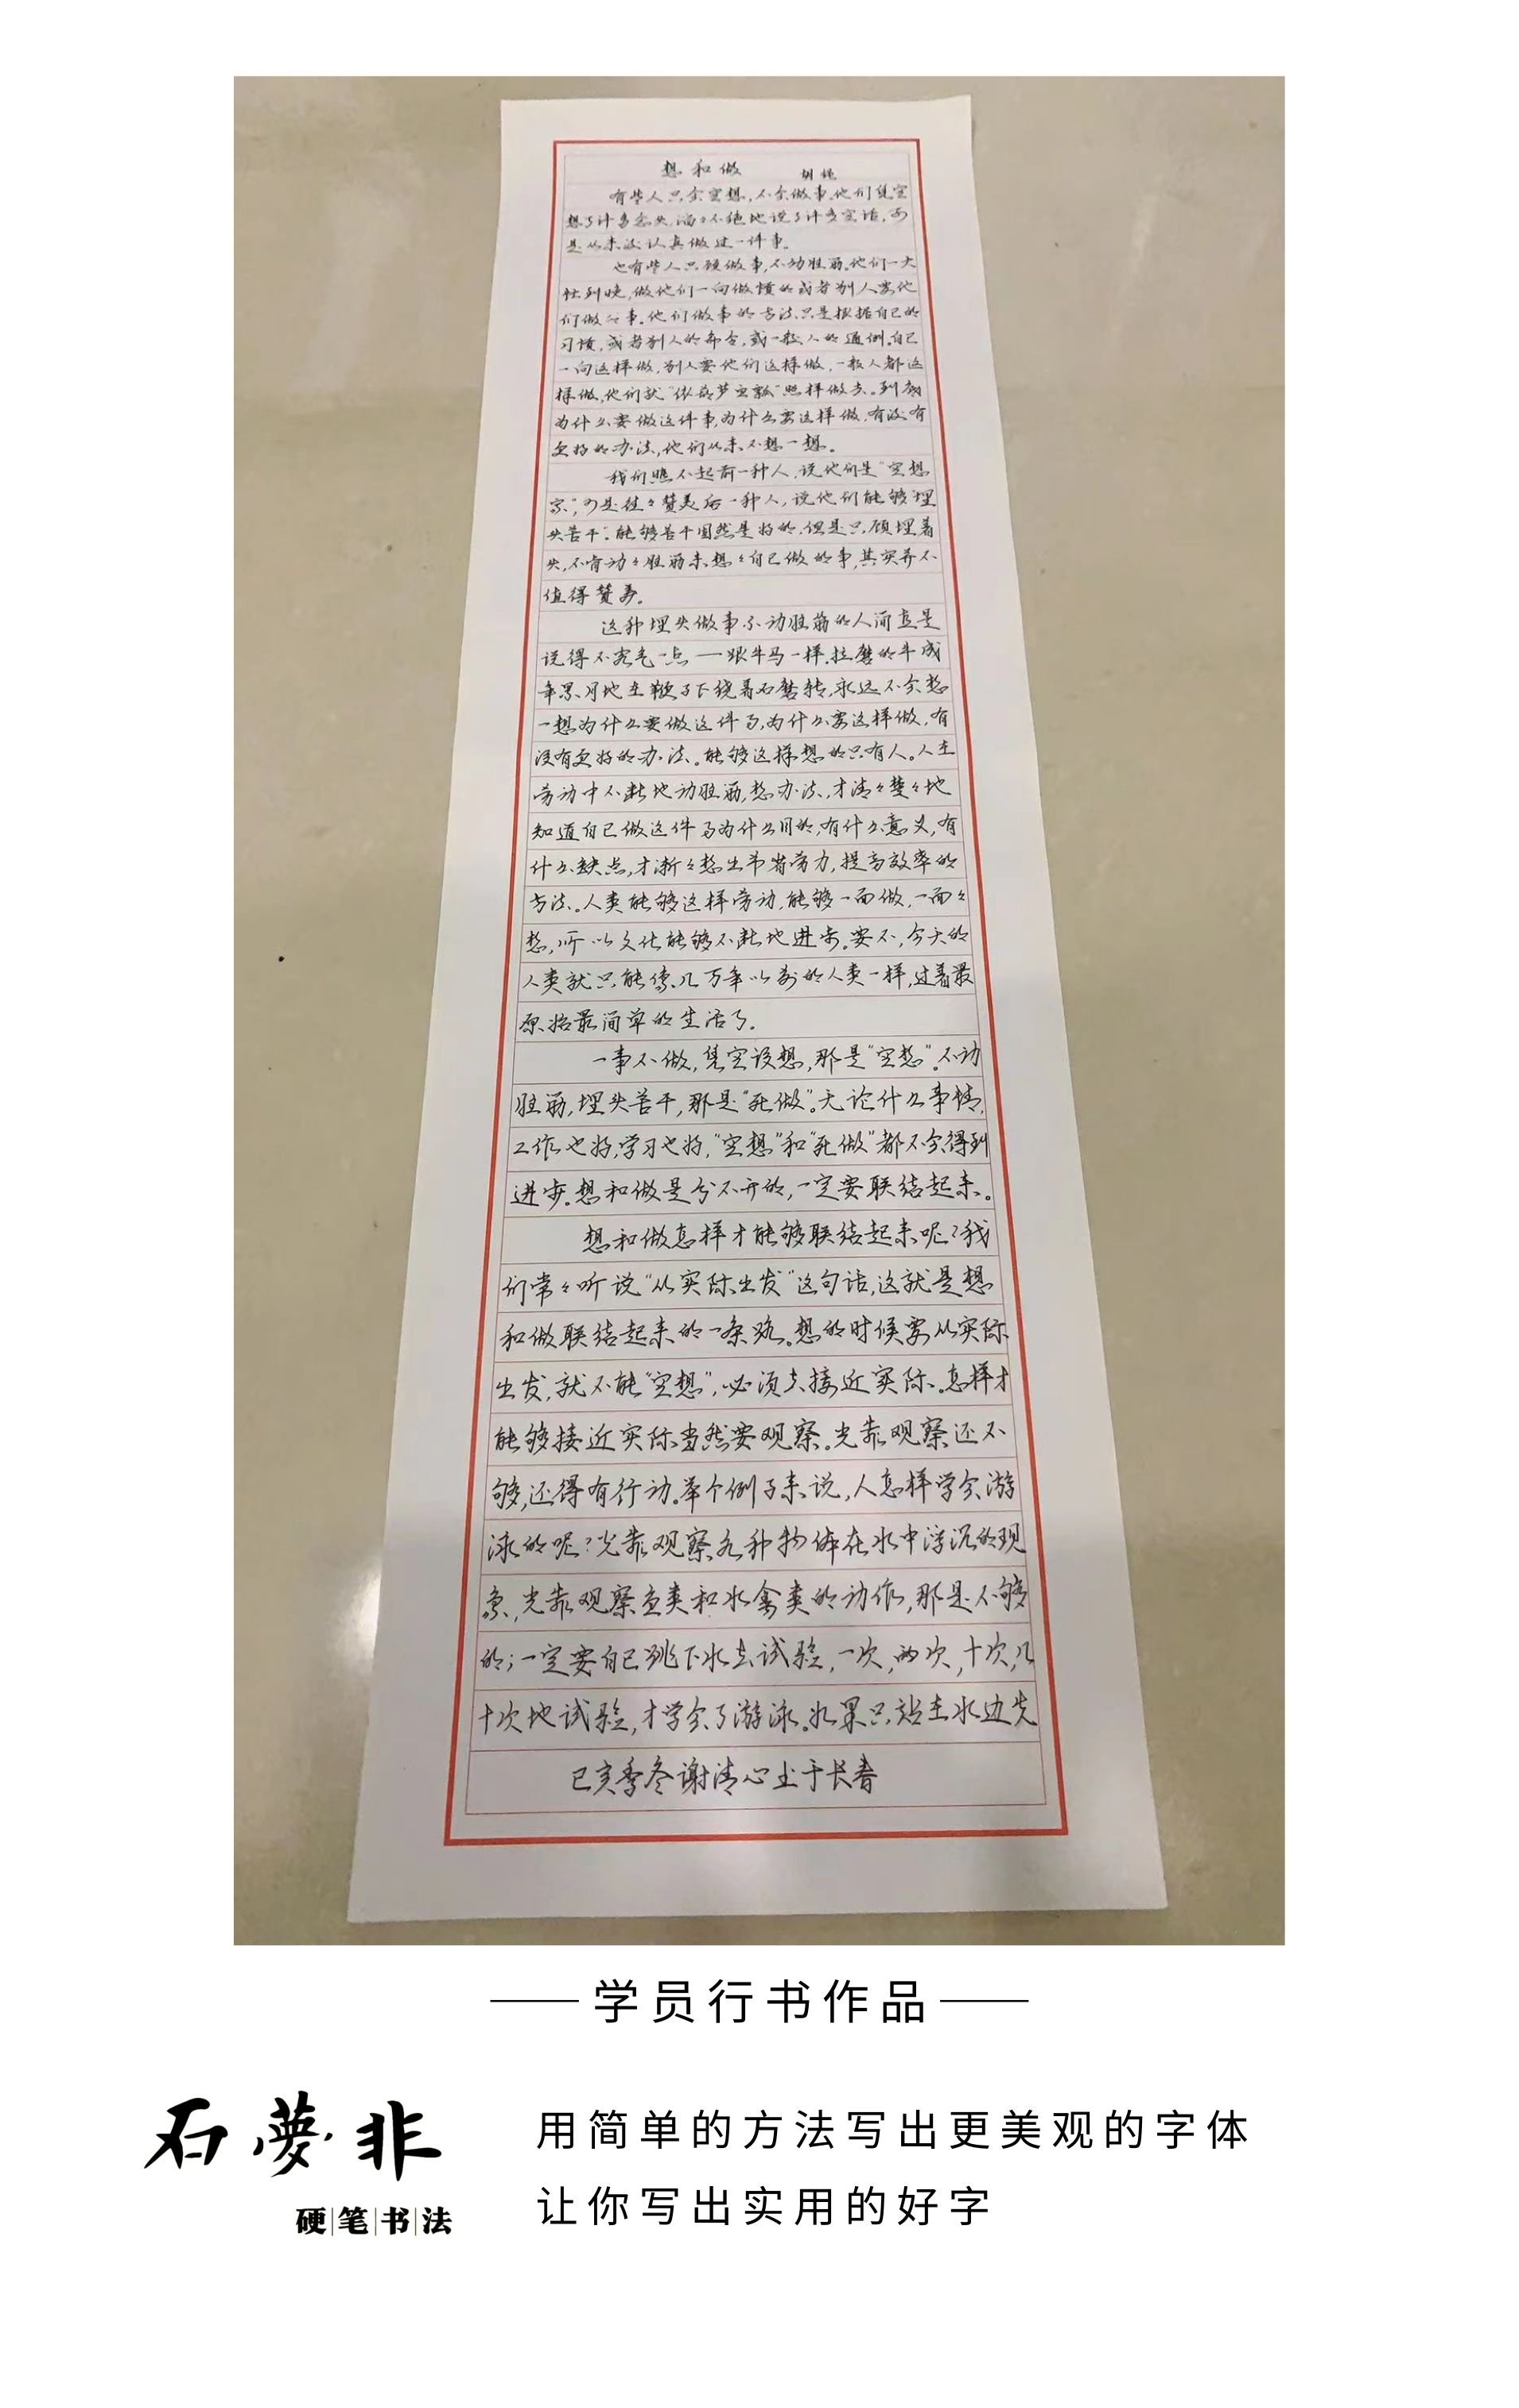 想和做 胡绳
有些人只会空想,不会做事。他们凭空
想了许多念头,滔々不绝地说了许多空话,可
是从来没认真做过一件事。
也有些人只顾做事,不动脑筋。他们一天
忙到晚,做他们一向做惯的或者别人要他
们做的事。他们做事的方法只是根据自己的
习惯,或者别人的命令,或一般人的通例。自己
一向这样做,别人要他们这样做,一般人都这
样做,他们就“依葫芦画瓢”照样做去。到底
为什么要做这件事,为什么要这样做,有没有
更好的办法,他们从来不想一想。
我们瞧不起前一种人,说他们是“空想
家”,可是往々赞美后一种人,说他们能够“埋
头苦干”。能够苦干固然是好的,但是只顾埋着
头,不肯动々脑筋来想々自己做的事,其实并不
值得赞美。
这种埋头做事不动脑筋的人简直是
说得不客气一点——跟牛马一样。拉磨的牛成
年累月地在鞭子下绕着石磨转,永远不会想
一想为什么要做这件事,为什么要这样做,有
没有更好的办法。能够这样想的只有人。人在
劳动中不断地动脑筋,想办法,才清々楚々地
知道自己做这件事为什么目的,有什么意义,有
什么缺点,才渐々想出节省劳力,提高效率的
方法。人类能够这样劳动,能够一面做,一面々
想,所以文化能够不断地进步。要不,今天的
人类就只能像几万年以前的人类一样,过着最
原始最简单的生活了。
一事不做,凭空设想,那是“空想”。不动
脑筋,埋头苦干,那是“死做”。无论什么事情,
工作也好,学习也好,“空想”和“死做”都不会得到
进步。想和做是分不开的,一定要联结起来。
想和做怎样才能够联结起来呢?我
们常々听说“从实际出发”这句话,这就是想
和做联结起来的一条路。想的时候要从实际
出发,就不能“空想”,必须去接近实际。怎样才
能够接近实际当然要观察。光靠观察还不
够,还得有行动。举个例子来说,人怎样学会游
泳的呢?光靠观察各种物体在水中浮沉的现
象,光靠观察鱼类和水禽类的动作,那是不够
的;一定要自己跳下水去试验,一次,两次,十次,几
十次地试验,才学会了游泳。如果只站在水边先
己亥季冬谢清心书于长春
学员行书作品
石夢非
硬笔书法
用简单的方法写出更美观的字体
让你写出实用的好字